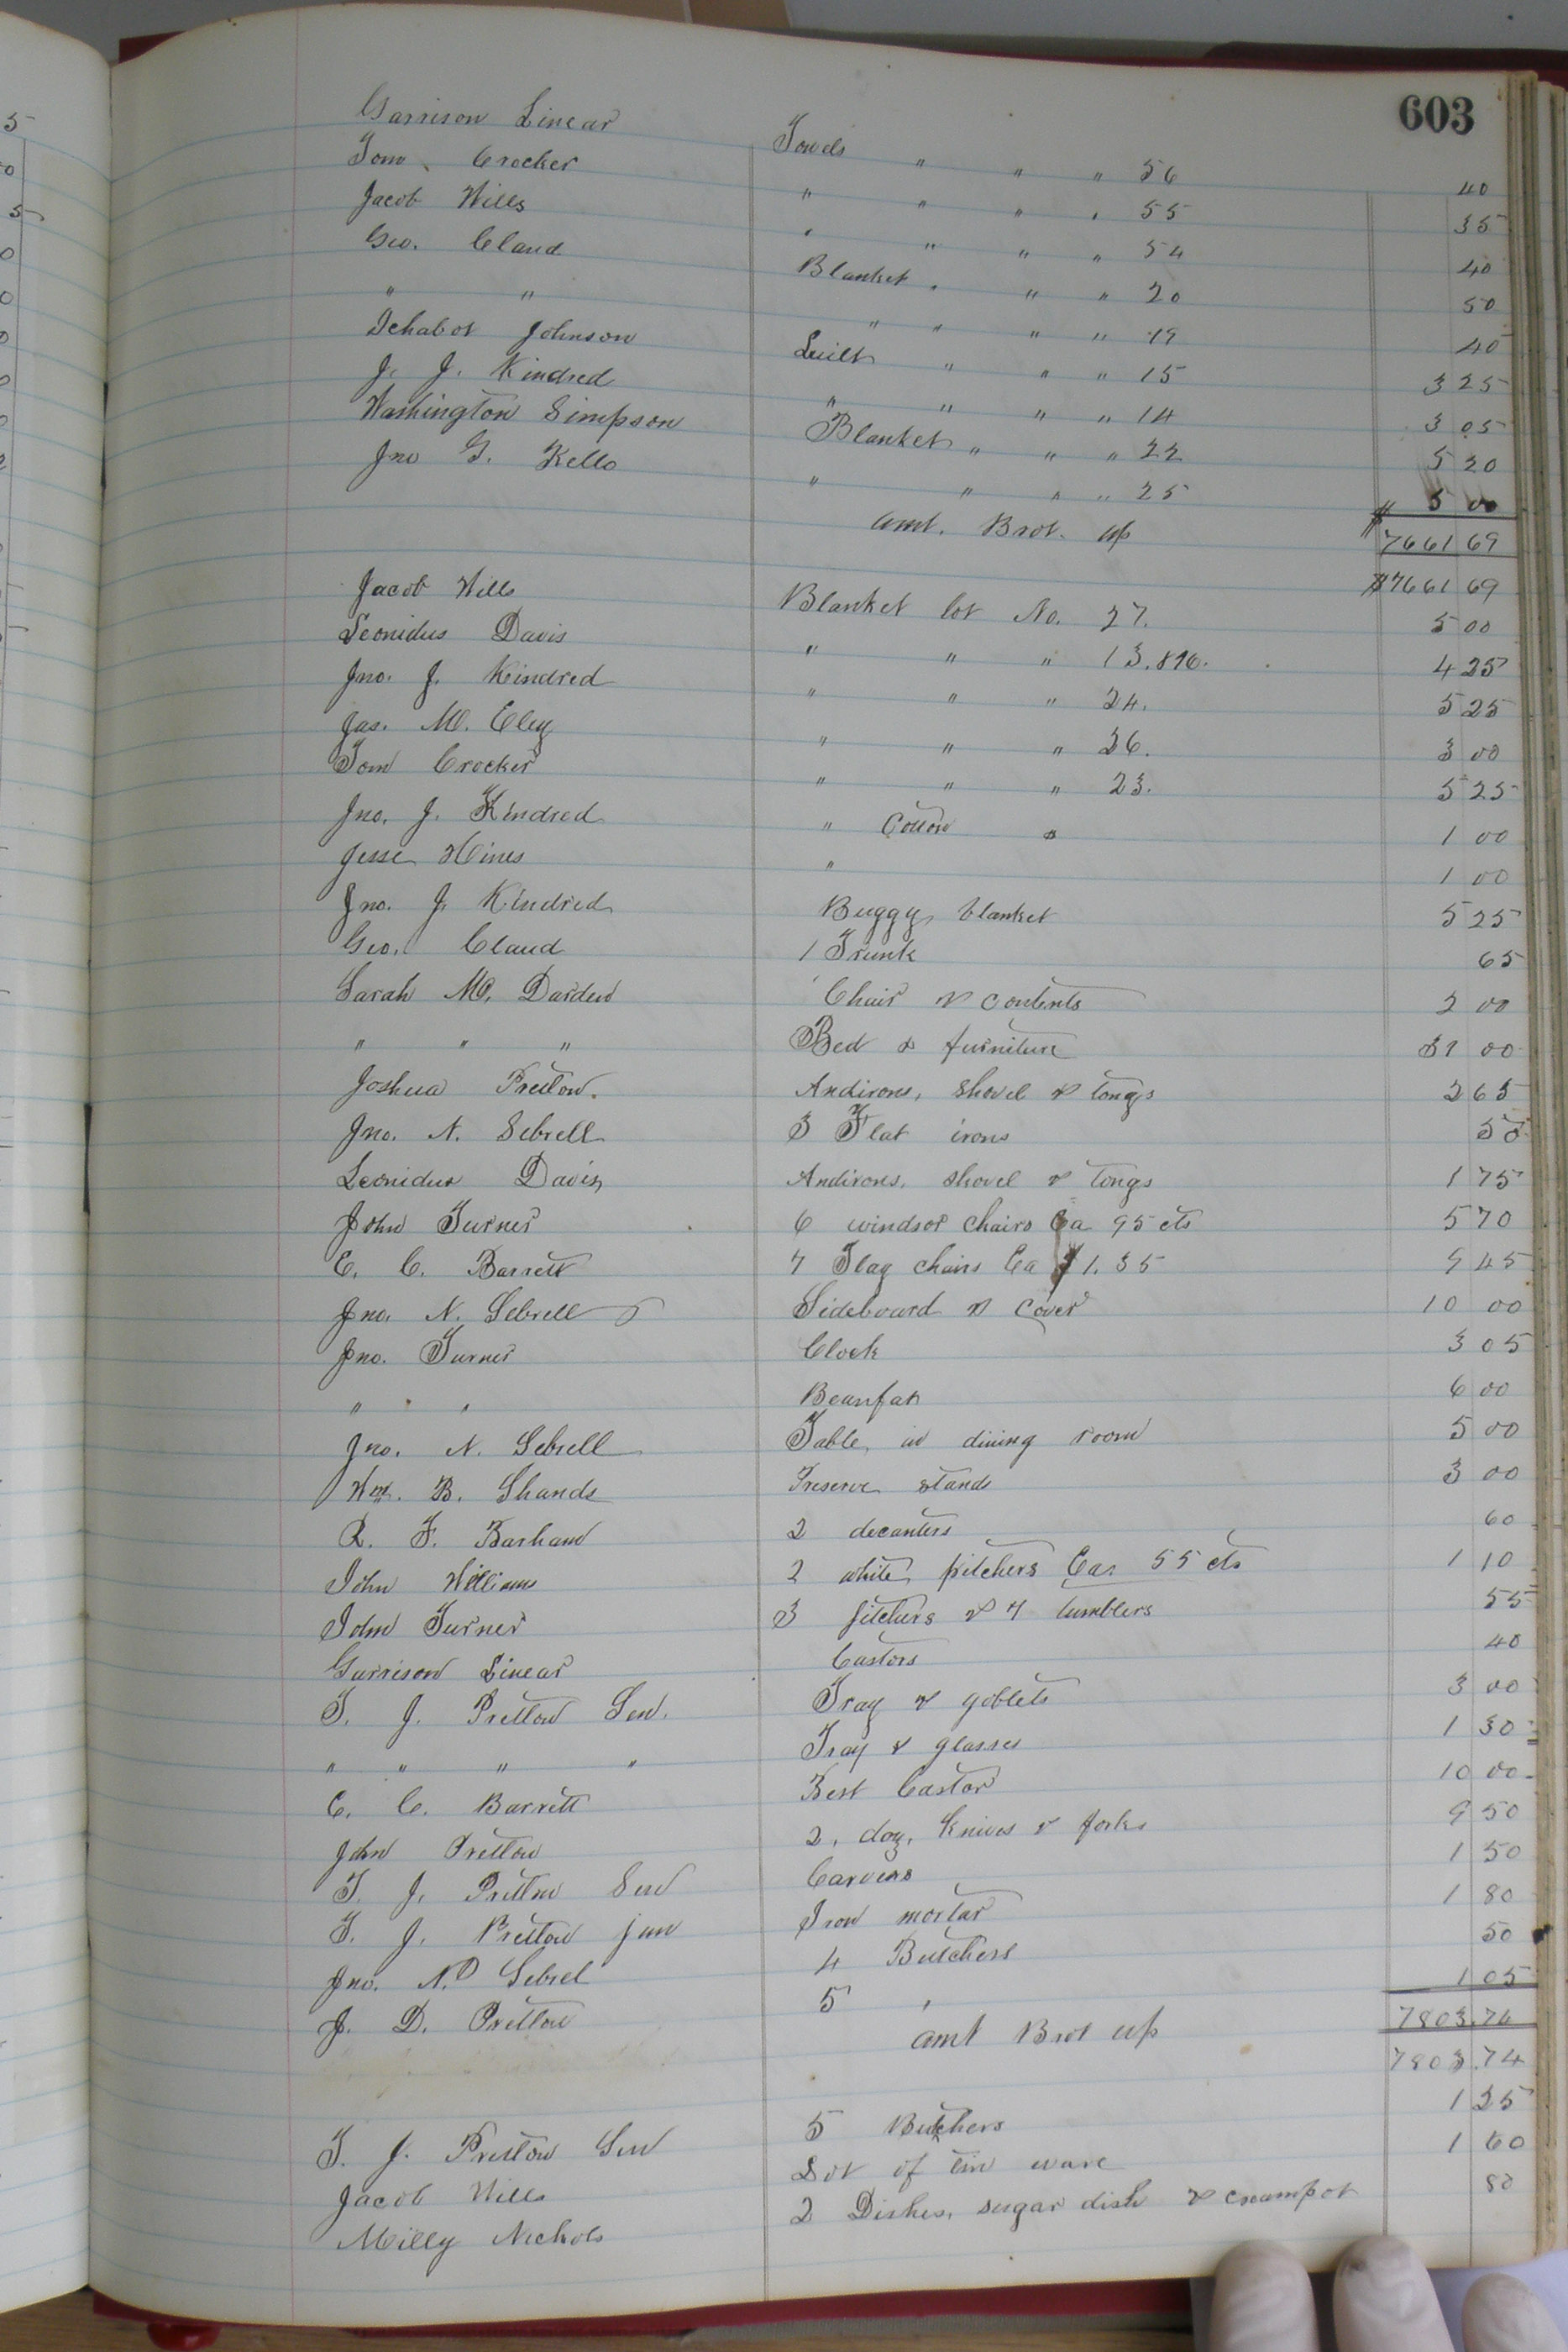 603
Garrison Linear Towels " " " 56 40
Tom Crocker " " " " 55 35
Jacob Wills " " " " 54 40
Geo. Claud Blanket " " " 20 50
" " " " " " 19 40
Ichabot Johnson Quilt " " " 15 3 25
J. J. Kindred " " " " 14 3 05
Washington Simpson Blanket " " " 22 5 20
Jno G. Kello " " " " 25 5 00
amt. Brot. up $7661 69
$7661 69
Jacob Wills Blanket lot No. 27. 5 00
Leonidus Davis " " " 13.896. 4 25
Jno. J. Kindred " " " 24. 5 25
Jas. M. Eley " " " 26. 3 00
Tom Crocker " " " 23. 5 25
Jno. J. Kindred " Cotton " 1 00
Jesse Hines " 1 00
Jno. J. Kindred Buggy blanket 5 25
Geo. Claud 1 Trunk 65
Sarah M. Darden Chair & contents 2 00
" " " Bed & furniture 31 00
Joshua Pretlow. Andirons, shovel & tongs 2 65
Jno. N. Sebrell 3 Flat irons 50
Leonidus Davis Andirons, shovel & tongs 1 75
John Turner 6 windsor chairs Ea 95 cts 5 70
E. C. Barrett 7 Flag chairs Ea $1.35 9 45
Jno. N. Sebrell Sideboard & cover 10 00
Jno. Turner Clock 3 05
" " Beaufat 6 00
Jno. N. Sebrell Table in dining room 5 00
Wm. B. Shands Preserve stands 3 00
R. F. Barham 2 decanters 60
John Williams 2 white pitchers Ea. 55 cts 1 10
John Turner 3 pitchers & 7 tumblers 55
Garrison Linear Castors 40
T. J. Pretlow Sen. Tray & goblets 3 00
" " " " Tray & glasses 1 30
E. C. Barrett Best Castor 10 00
John Pretlow 2, doz, knives & forks 9 50
T. J. Pretlow Sen Carvers 1 50
T. J. Pretlow jun Iron mortar 1 80
Jno. N. Sebrel 4 Butchers 50
J. D. Pretlow 5 " 1 05
amt Brot up 7803.74
7803.74
T. J. Pretlow Sen 5 Butchers 1 25
Jacob Wills Lot of tin ware 1 60
Milly Nichols 2 Dishes, sugar dish & creampot 80